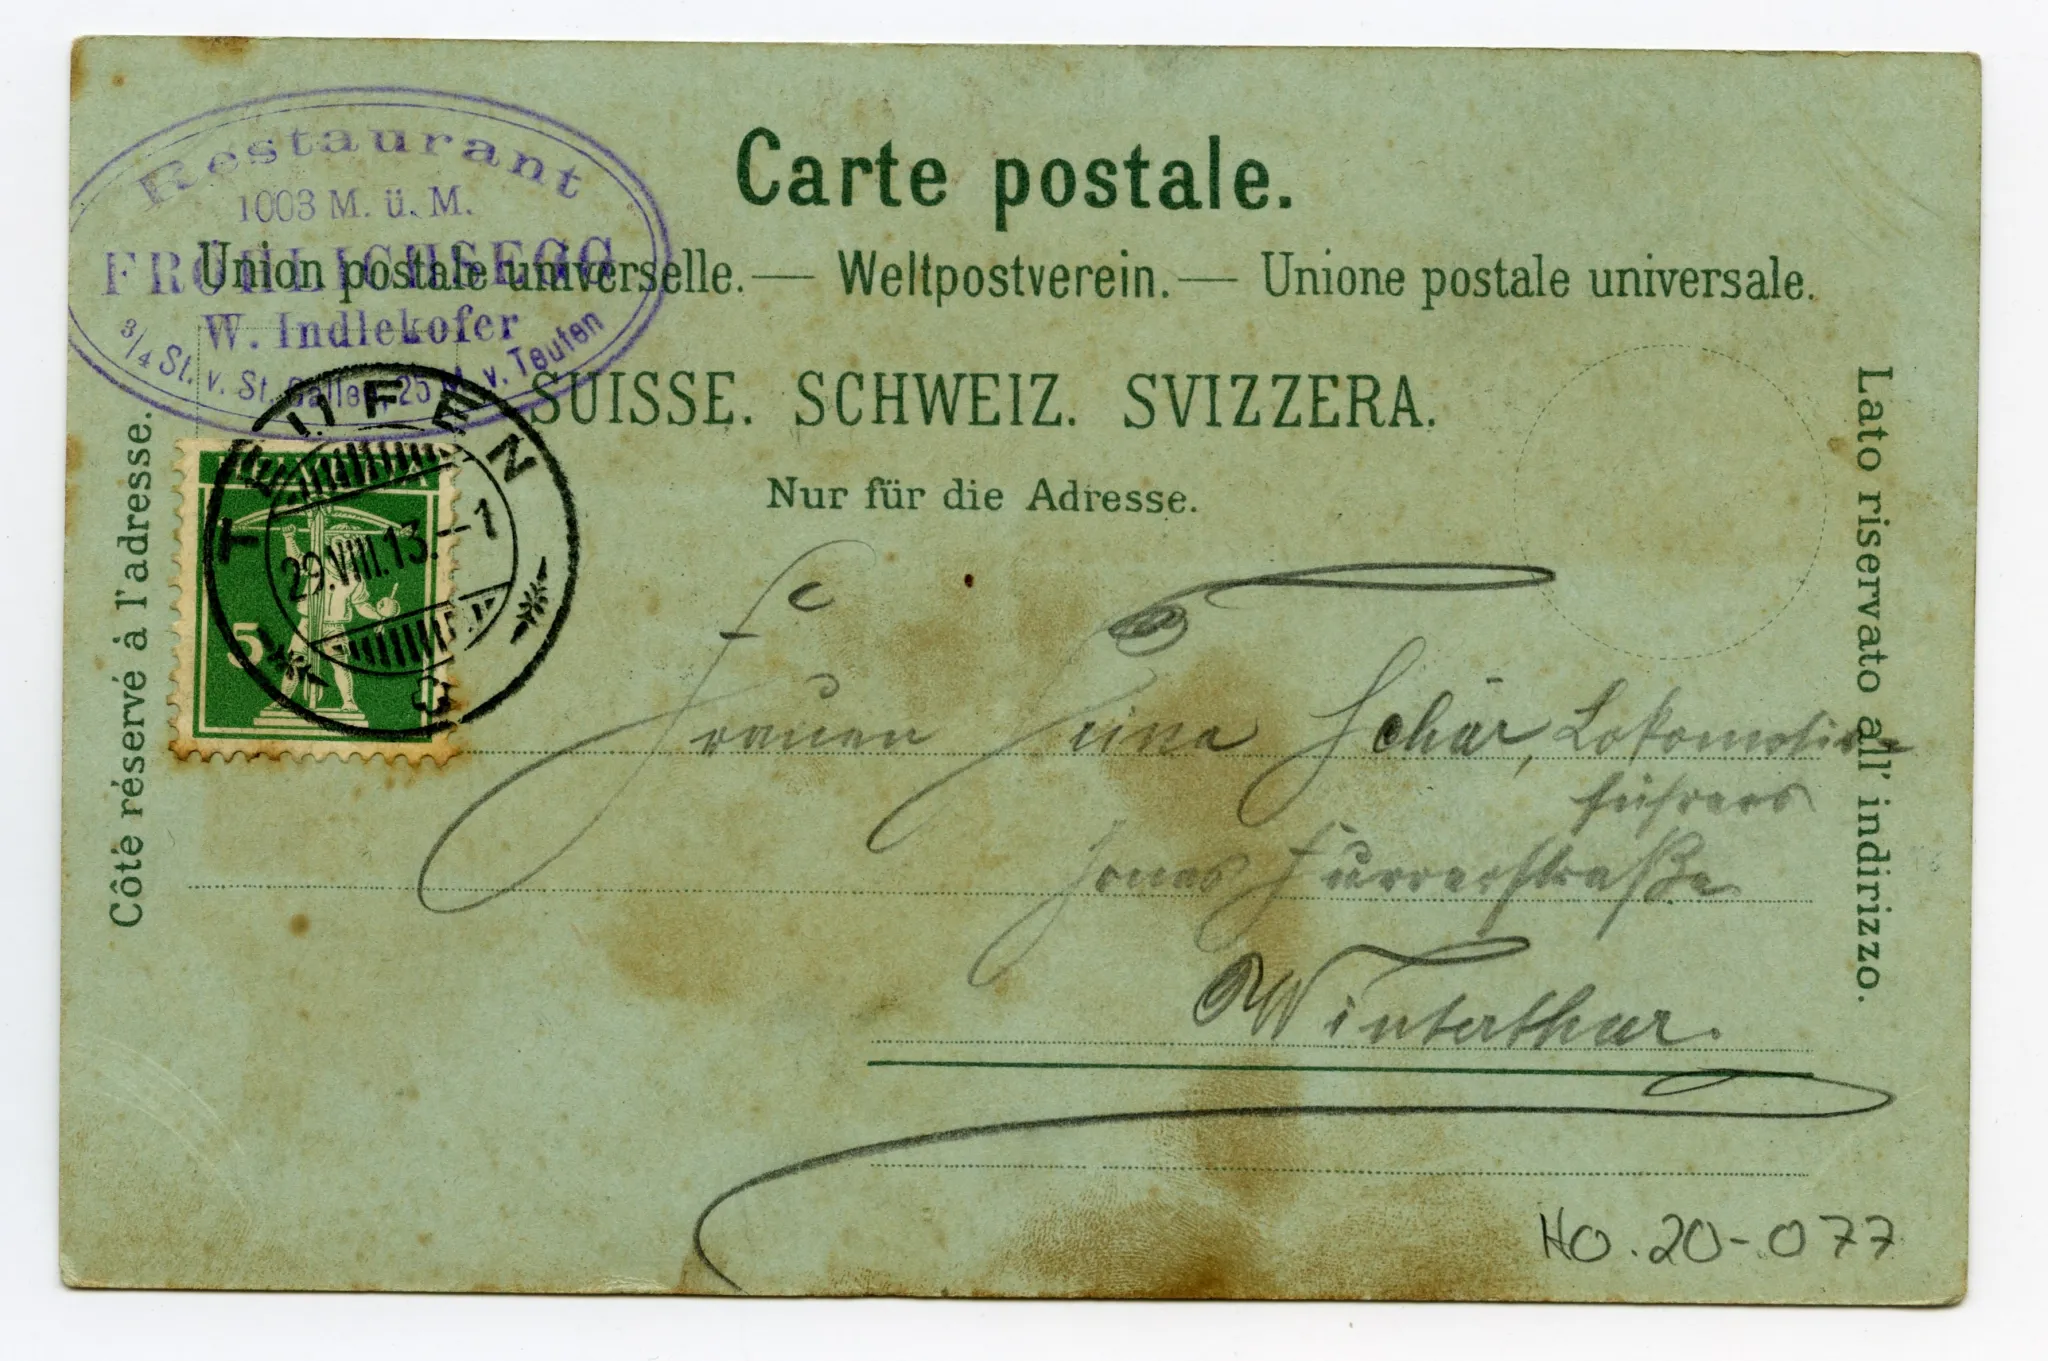 Restaurant
1003 M. ü. M.
FRÖHLICHSEGG
W. Indlekofer
3/4 St. v. St. Gallen, 25 M. v. Teufen
Carte postale.
Union postale universelle. — Weltpostverein. — Unione postale universale.
SUISSE. SCHWEIZ. SVIZZERA.
Nur für die Adresse.
Côté réservé à l'adresse.
Lato riservato all' indirizzo.
HELVETIA
5
TEUFEN
29.VIII.13.–1
Frauen Schär, Lokomotiv
führers
Jonas Furrerstraße
Winterthur.
HO.20-077